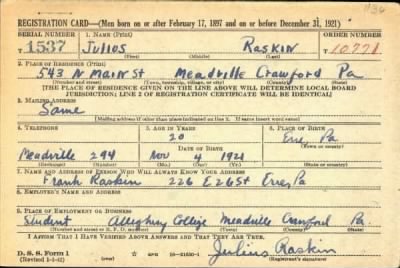 REGISTRATION CARD—(Men born on or after February 17, 1897 and on or before December 31, 1921)
SERIAL NUMBER 1. NAME (Print) ORDER NUMBER
T 1537 Julios Raskin 10771
(First) (Middle) (Last)
2. PLACE OF RESIDENCE (Print)
543 N Main St Meadville Crawford Pa
(Number and street) (Town, township, village, or city) (County) (State)
[THE PLACE OF RESIDENCE GIVEN ON THE LINE ABOVE WILL DETERMINE LOCAL BOARD
JURISDICTION; LINE 2 OF REGISTRATION CERTIFICATE WILL BE IDENTICAL]
3. MAILING ADDRESS
Same
[Mailing address if other than place indicated on line 2. If same insert word same]
4. TELEPHONE 5. AGE IN YEARS 6. PLACE OF BIRTH
20 Erie,
DATE OF BIRTH (Town or county)
Meadville 294 Nov 4 1921 Pa
(Exchange) (Number) (Mo.) (Day) (Yr.) (State or country)
7. NAME AND ADDRESS OF PERSON WHO WILL ALWAYS KNOW YOUR ADDRESS
Frank Raskin 226 E 26 St Erie, Pa
8. EMPLOYER'S NAME AND ADDRESS
9. PLACE OF EMPLOYMENT OR BUSINESS
Student Allegheny College Meadville Crawford Pa
(Number and street or R. F. D. number) (Town) (County) (State)
I AFFIRM THAT I HAVE VERIFIED ABOVE ANSWERS AND THAT THEY ARE TRUE.
D. S. S. Form 1
(Revised 1-1-42) (over) 16—21630-1 Julius Raskin
(Registrant's signature)